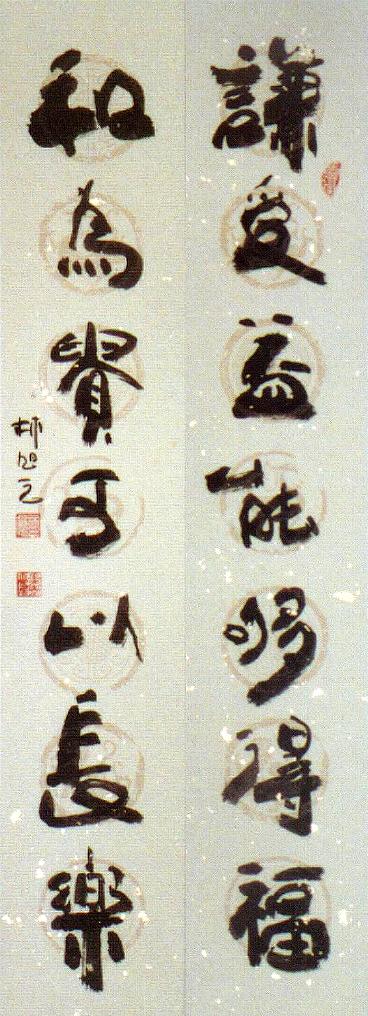 謙受益能够得福
和為貴可以長樂
林旭之